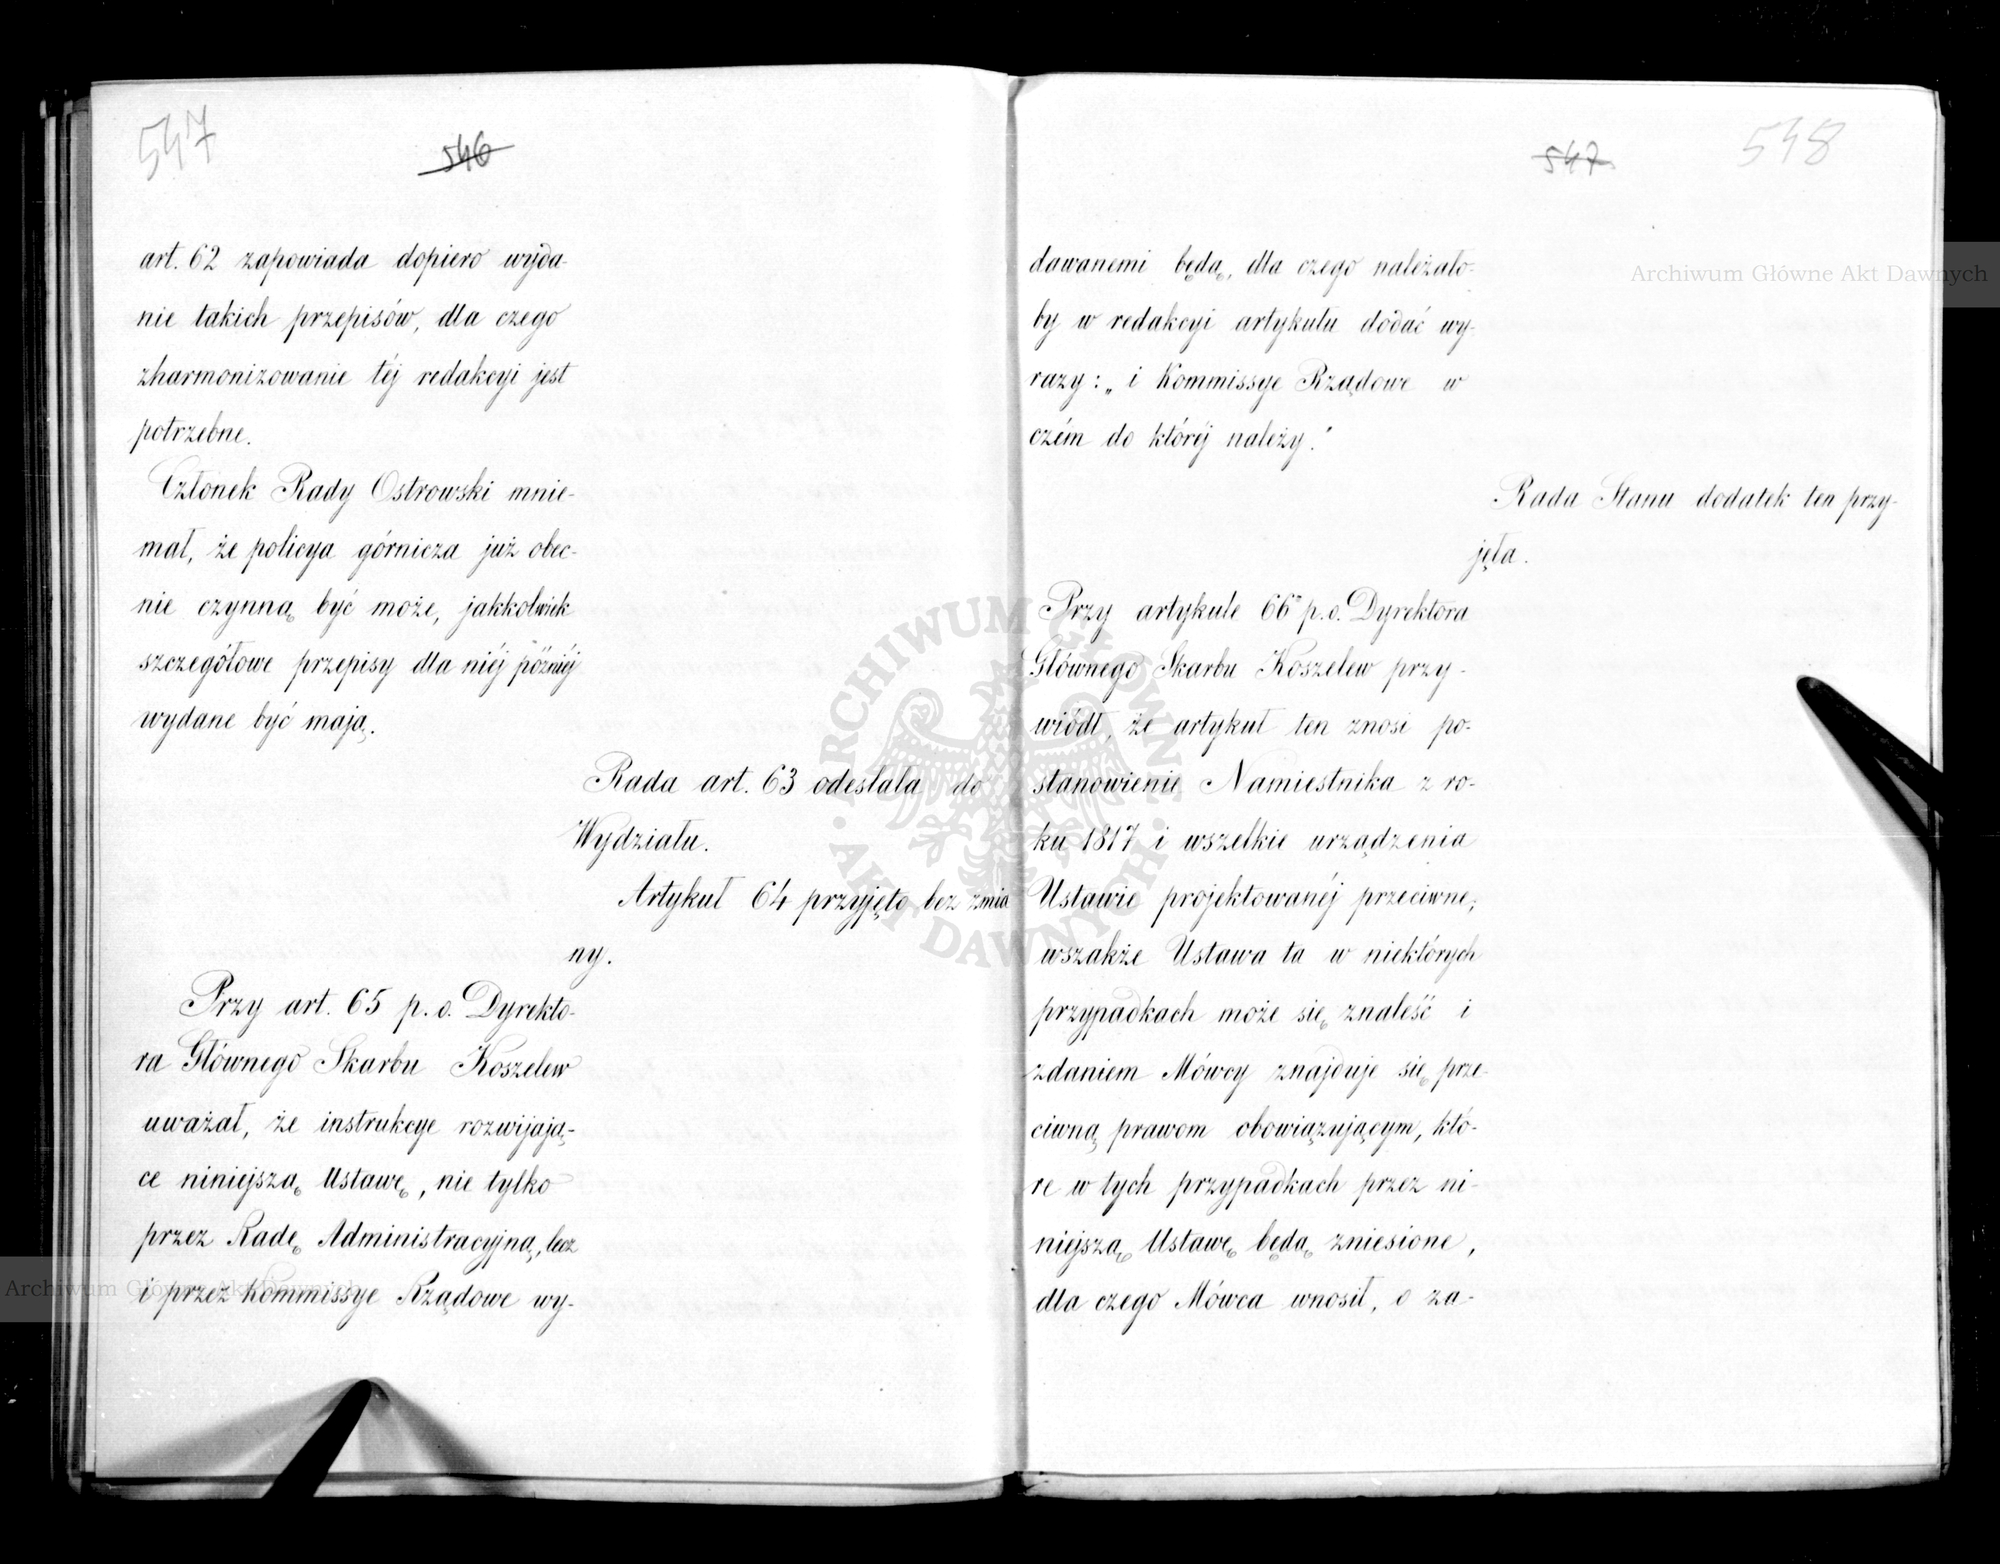 547
546
art. 62 zapowiada dopiero wyda-
nie takich przepisów, dla czego
zharmonizowanie téj redakcyi jest
potrzebne.
Członek Rady Ostrowski mnie-
mał, że policya górnicza już obec-
nie czynną być może, jakkolwiek
szczegółowe przepisy dla niéj późniéj
wydane być mają.
Rada art. 63 odesłała do
Wydziału.
Artykuł 64 przyjęto bez zmia
ny.
Przy art. 65 p. o. Dyrekto-
ra Głównego Skarbu Koszelew
uważał, że instrukcye rozwijają-
ce niniejszą Ustawę, nie tylko
przez Radę Administracyjną, lecz
i przez Kommissye Rządowe wy-
547
548
dawanemi będą, dla czego należało-
by w redakcyi artykułu dodać wy-
razy: „i Kommissye Rządowe w
czém do któréj należy."
Rada Stanu dodatek ten przy-
jęła.
Przy artykule 66° p. o. Dyrektora
Głównego Skarbu Koszelew przy-
wiódł, że artykuł ten znosi po-
stanowienie Namiestnika z ro-
ku 1817 i wszelkie urządzenia
Ustawie projektowanéj przeciwne,
wszakże Ustawa ta w niektórych
przypadkach może się znaleść i
zdaniem Mówcy znajduje się prze-
ciwną prawom obowiązującym, któ-
re w tych przypadkach przez ni-
niejszą Ustawę będą zniesione,
dla czego Mówca wnosił, o za-
Archiwum Główne Akt Dawnych
ARCHIWUM GŁÓWNE
AKT DAWNYCH
Archiwum Główne Akt Dawnych